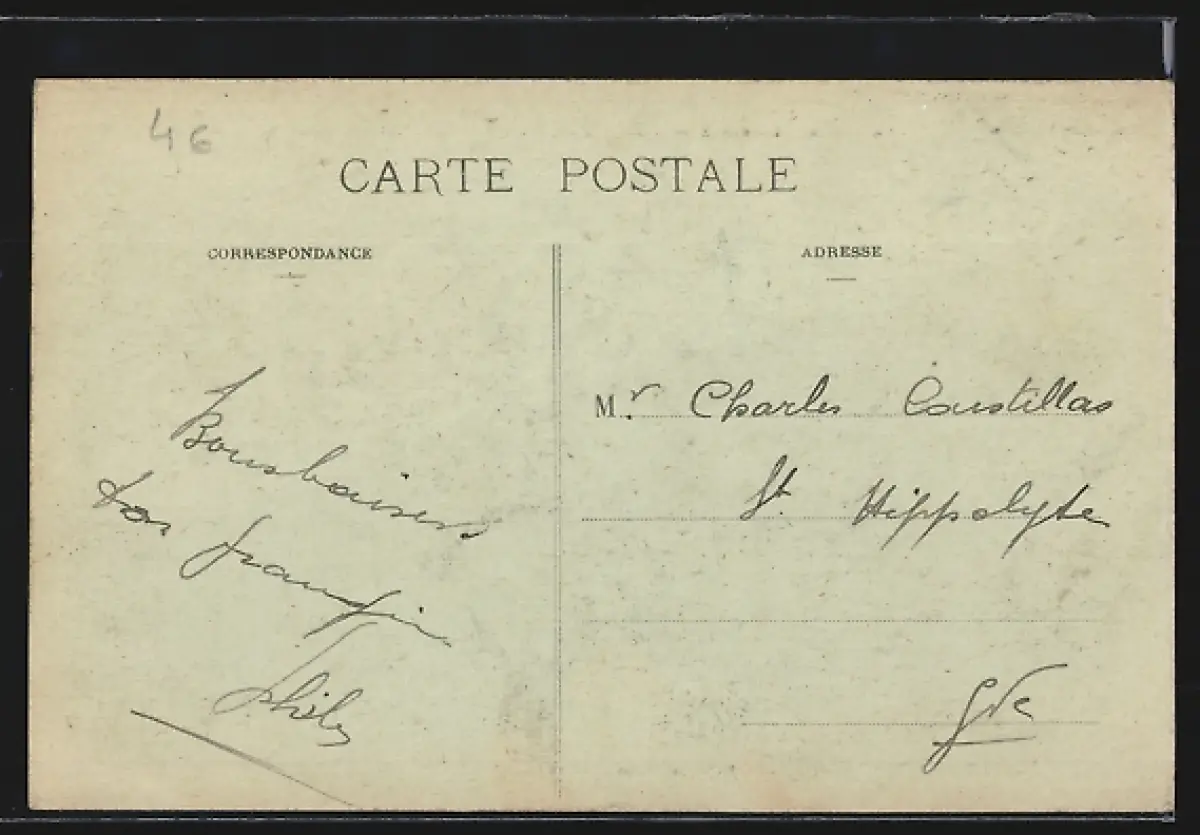 46
CARTE POSTALE
CORRESPONDANCE
Bons baisers
Ton
ADRESSE
Mr. Charles Coustillas
St. Hippolyte
Gde